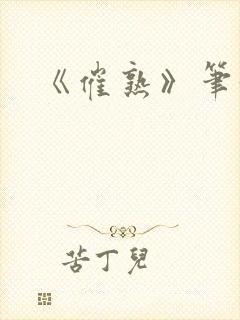 《催熟》筆
苦丁兒